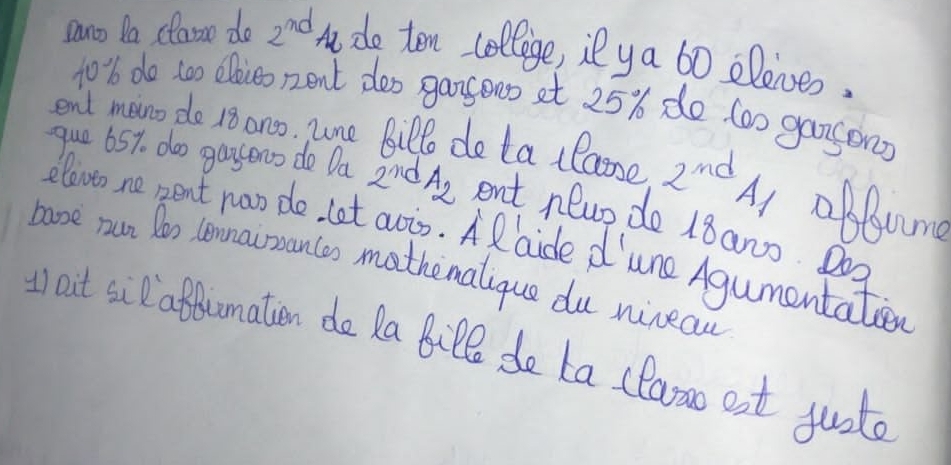 Dans la classe de 2nd A2 de ton collège, il y a 60 élèves.
40% de ces élèves sont des garçons et 25% de ces garçons
ont moins de 18 ans. Une fille de ta classe 2nd A1 affirme
que 65% des garçons de la 2nd A2 ont plus de 18 ans. Des
élèves ne sont pas de cet avis. À l'aide d'une Agumentation
basé sur les connaissances mathématique du niveau.
1) Dit si l'affirmation de la fille de ta classe est juste